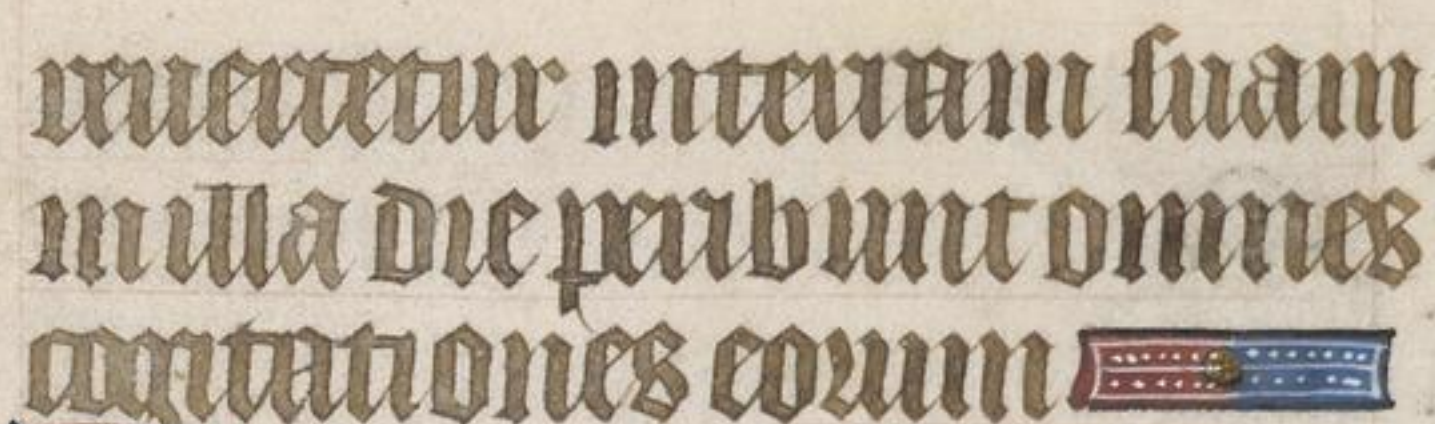 reuertetur interram suam
in illa die peribunt omnes
cogitationes eorum